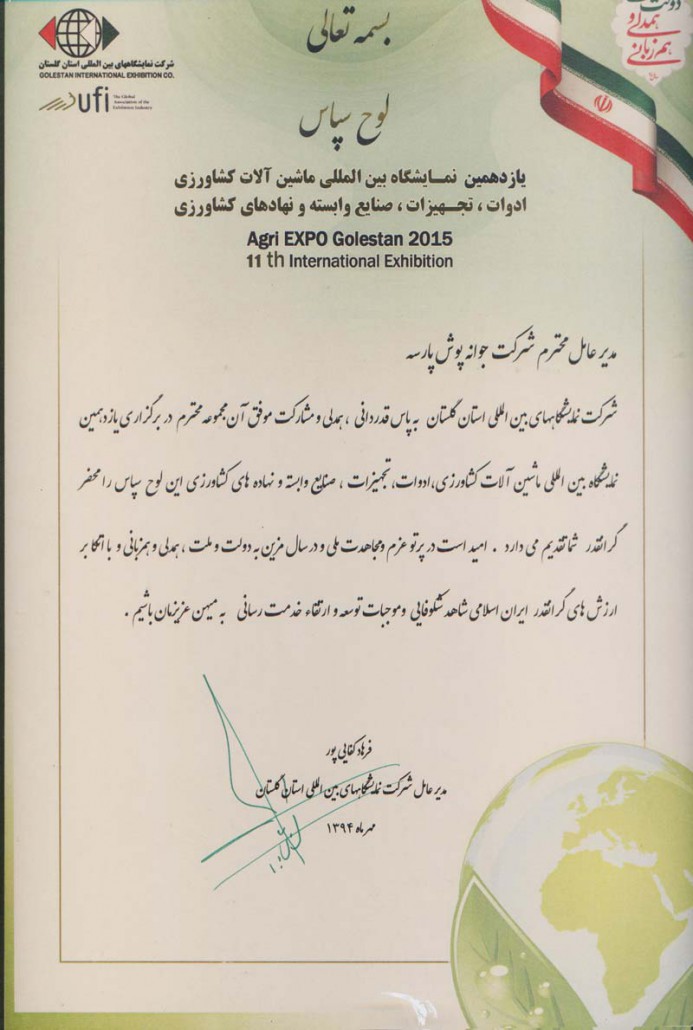 شرکت نمایشگاههای بین المللی استان گلستان
GOLESTAN INTERNATIONAL EXHIBITION CO.
ufi
The Global
Association of the
Exhibition Industry
دولت
همدلی و
همزبانی
بسمه تعالی
لوح سپاس
یازدهمین نمـایشگاه بین المللی ماشین آلات کشاورزی
ادوات ، تجـهیزات ، صنایع وابسته و نهادهای کشاورزی
Agri EXPO Golestan 2015
11 th International Exhibition
مدیر عامل محترم شرکت جوانه پوش پارسه
شرکت نمایشگاههای بین المللی استان گلستان به پاس قدردانی ، همدلی و مشارکت موفق آن مجموعه محترم در برگزاری یازدهمین
نمایشگاه بین المللی ماشین آلات کشاورزی،ادوات، تجهیزات ، صنایع وابسته و نهاده های کشاورزی این لوح سپاس را محضر
گرانقدر شما تقدیم می دارد . امید است در پرتو عزم ومجاهدت ملی و در سال مزین به دولت و ملت ، همدلی و همزبانی و با اتکا بر
ارزش های گرانقدر ایران اسلامی شاهد شکوفایی وموجبات توسعه و ارتقاء خدمت رسانی به میهن عزیزمان باشیم .
فرهاد کفایی پور
مدیر عامل شرکت نمایشگاههای بین المللی استان گلستان
مهرماه ۱۳۹۴